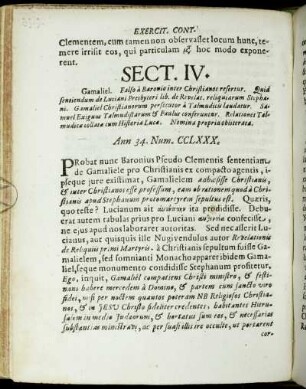 EXERCIT. CONT.
Clementem, cum tamen non observasset locum hunc, te-
mere irrisit eos, qui particulam hoc modo expone-
rent.
SECT. IV.
Gamaliel. Falso à Baronio inter Christianos refertur. Quid
sentiendum de Luciani Presbyteri lib. de Revelat. reliquiarum Stepha-
ni. Gamaliel Christianorum persecutor à Talmudicis laudatur. Sa-
muel Exiguus Talmudistarum & Paulus conferuntur. Relationes Tal-
mudicæ collatæ cum Historia Lucæ. Nomina propria obliterata.
Ann 34. Num. CCLXXX.
PRobat nunc Baronius Pseudo Clementis sententiam
de Gamaliele pro Christianis ex compacto agentis,
ipseque jure existimat, Gamalielem Christis,
& inter Christianos esse professum, eam ob rationem quod à Chri-
stianis apud Stephanum protomartyrem sepultus est. Quæris,
quo teste? Lucianum ait ita prodidisse. Debue-
rat autem tabulas prius pro Luciani confecisse,
ne ejus apud nos laboraret autoritas. Sed nec asserit Lu-
cianus, aut quisquis ille Nugivendulus autor Revelationis
de Reliquiis primi Martyris. à Christianis sepultum fuisse Ga-
malielem, sed somnianti Monacho apparei ibidem Gama-
liel, seque monumento condidisse Stephanum profitetur.
Ego, inquit, Gamaliel compatiens Christi ministro, & festi-
nans habere mercedem à Domino, & partem cum sancto viro
fidei, misi per noctem quantos poteram NB Religiosos Christia-
nos, & in JESU Christo fideliter credentes: habitantes Hieru-
salem in medio Judæorum, & hortatus sum eos, & necessarias
substantias ministravi, ac per suasi illis ire occulte, ut portarent
cor-